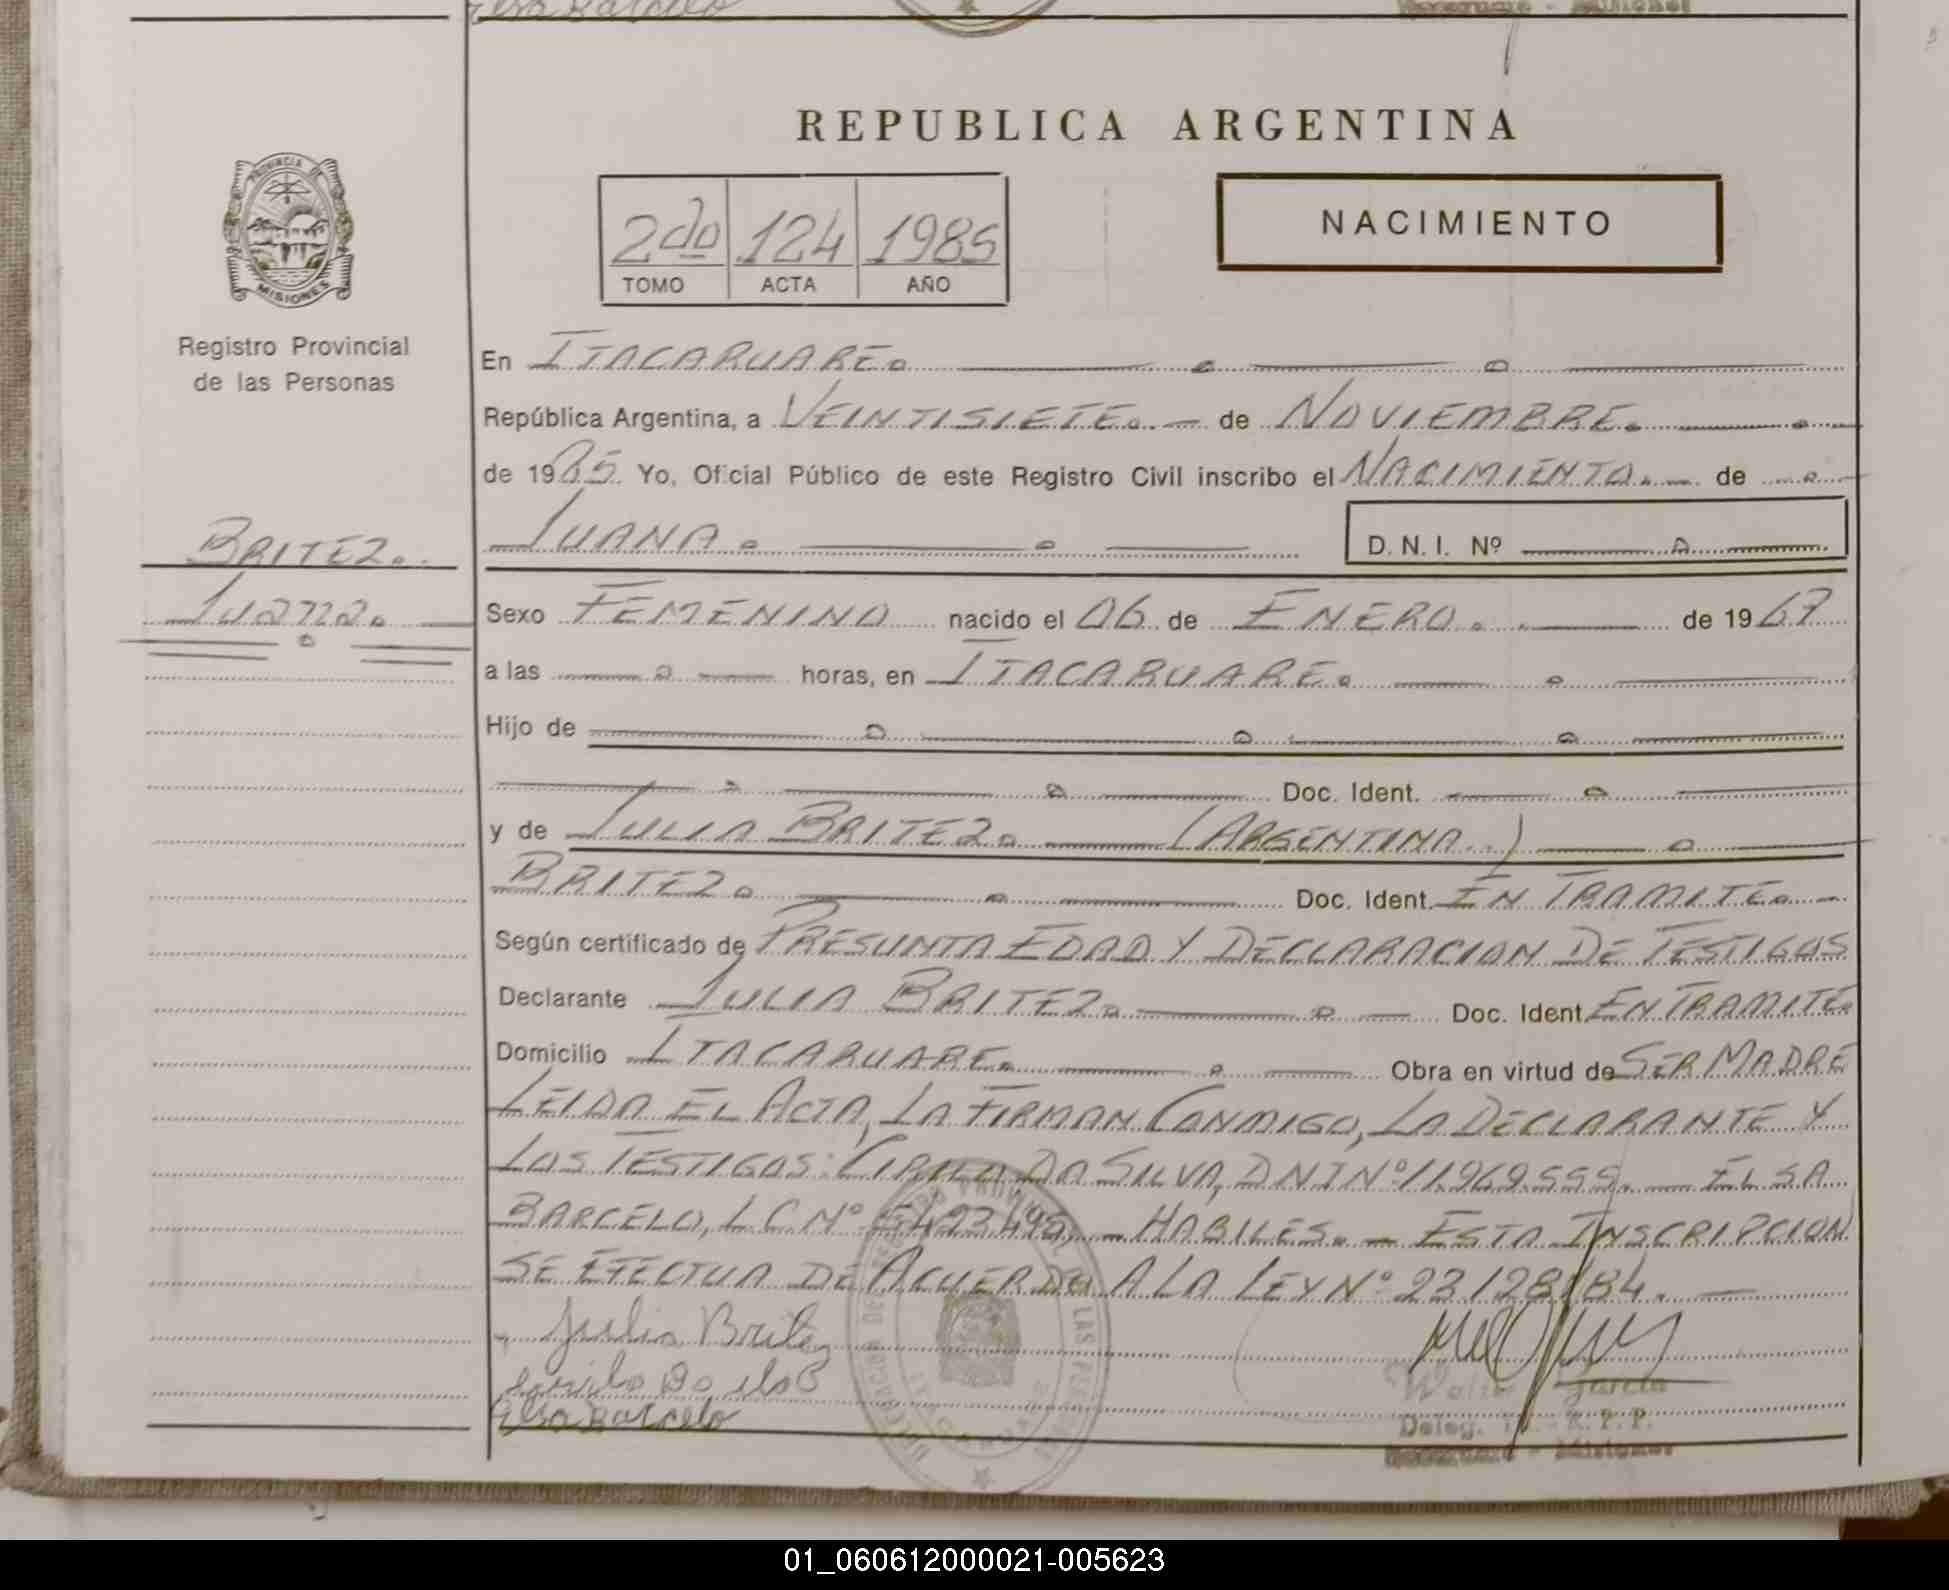 Elsa Barcelo
REPUBLICA ARGENTINA
2do 124 1985
TOMO ACTA AÑO
NACIMIENTO
PROVINCIA DE
MISIONES
Registro Provincial
de las Personas
BRITEZ.
Juana.
En ITACARUARE.
República Argentina, a VEINTISIETE. de NOVIEMBRE.
de 1985. Yo, Oficial Público de este Registro Civil inscribo el NACIMIENTO. de
JUANA. D. N. I. Nº
Sexo FEMENINO nacido el 06 de ENERO. de 1967
a las horas, en ITACARUARE.
Hijo de
Doc. Ident.
y de JULIA BRITEZ. (ARGENTINA.)
BRITEZ. Doc. Ident. EN TRAMITE.
Según certificado de PRESUNTA EDAD Y DECLARACION DE TESTIGOS
Declarante JULIA BRITEZ. Doc. Ident. EN TRAMITE.
Domicilio ITACARUARE. Obra en virtud de SER MADRE
LEIDA EL ACTA, LA FIRMAN CONMIGO, LA DECLARANTE Y
LOS TESTIGOS: CIRILO DA SILVA, DNI Nº 11.969.599. — ELSA
BARCELO, L C Nº 5423498, — HABILES. — ESTA INSCRIPCION
SE EFECTUA DE ACUERDO A LA LEY Nº 23128/84. —
Julia Britez
Elsa Barcelo
Garcia
Deleg. R. P. P.
Misiones
01_060612000021-005623